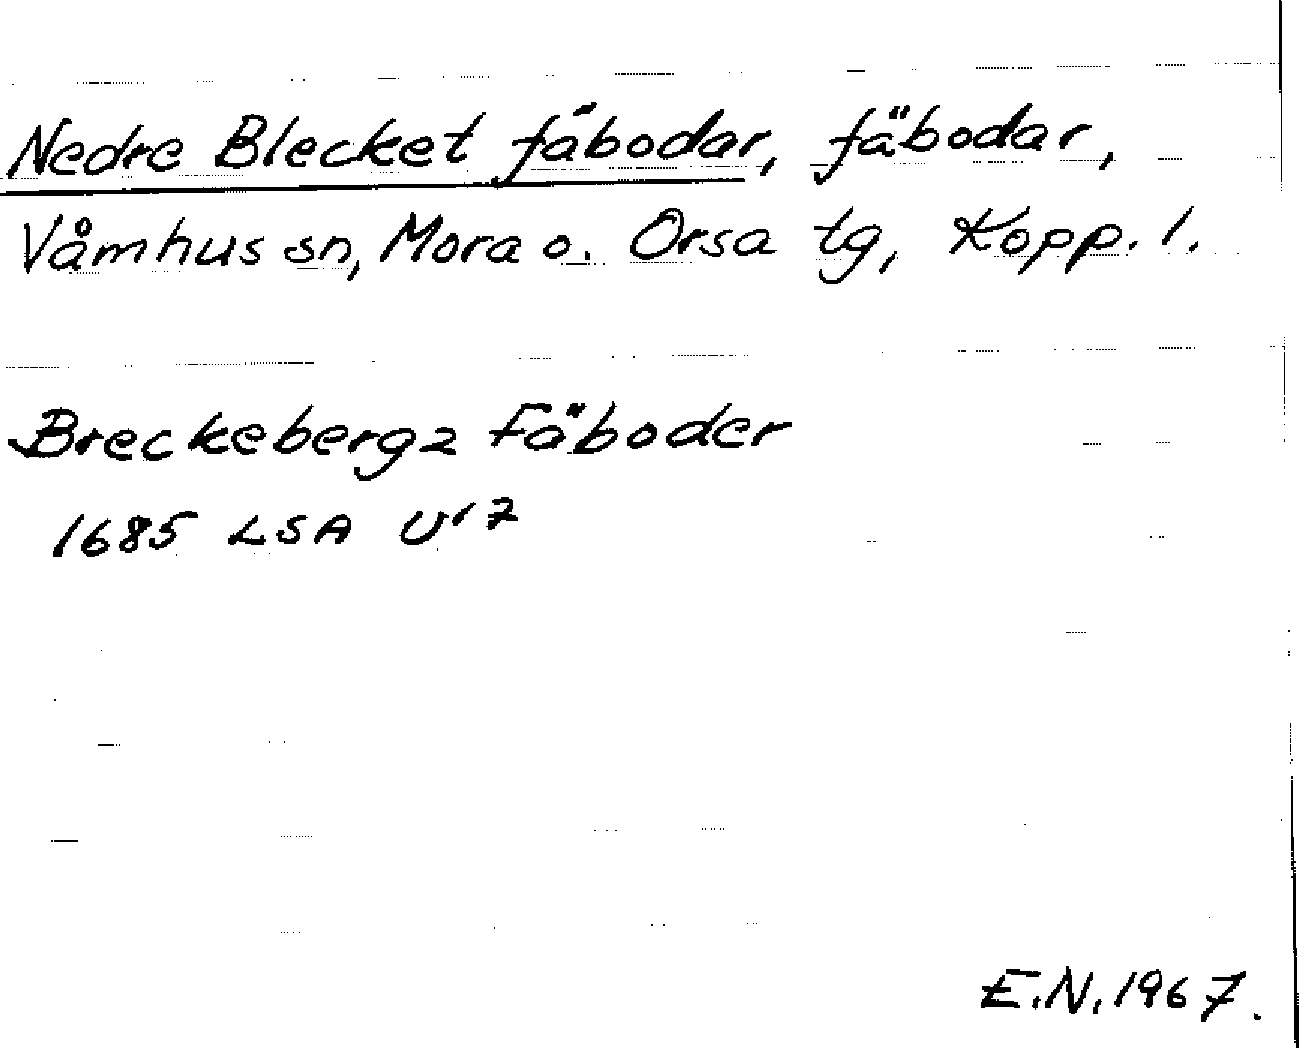 Nedre Blecket fäbodar, fäbodar,
Våmhus sn, Mora o. Orsa tg, Kopp. l.
Breckebergz Fäboder
1685 LSA U17
E.N. 1967.